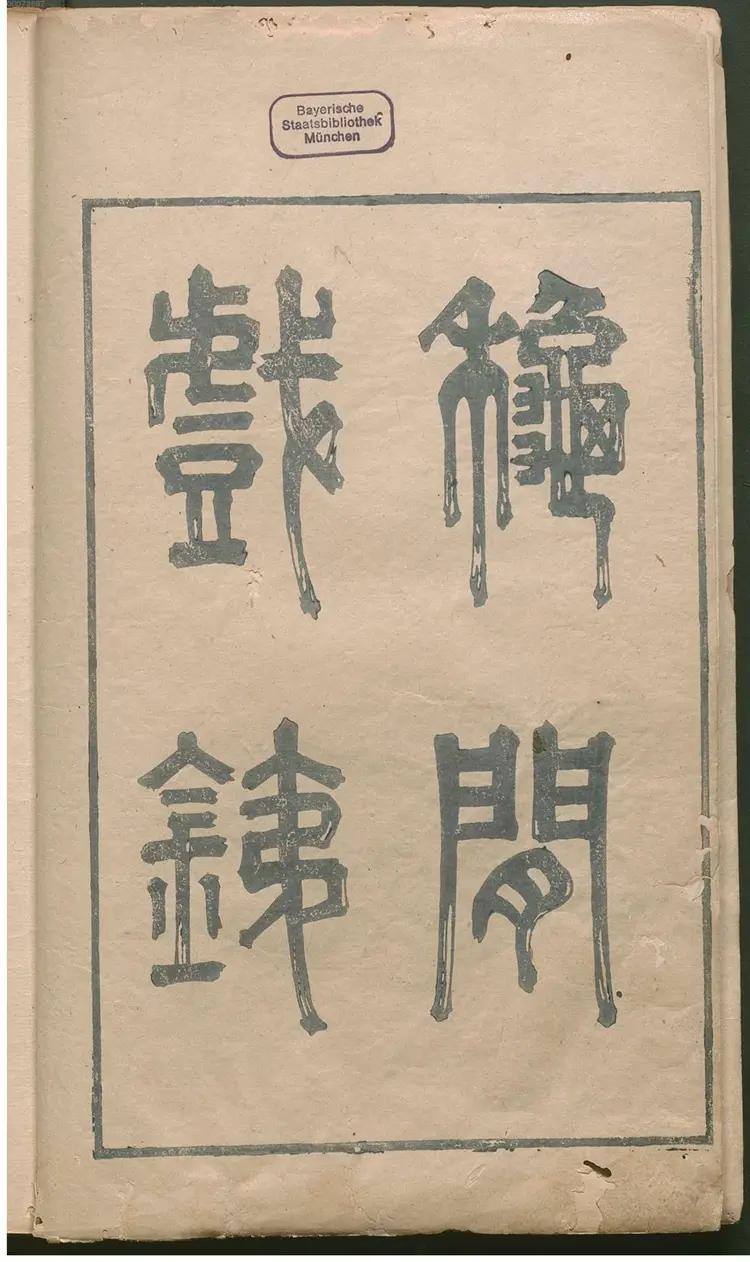 Bayerische
Staatsbibliothek
München
龝閒
戲銕